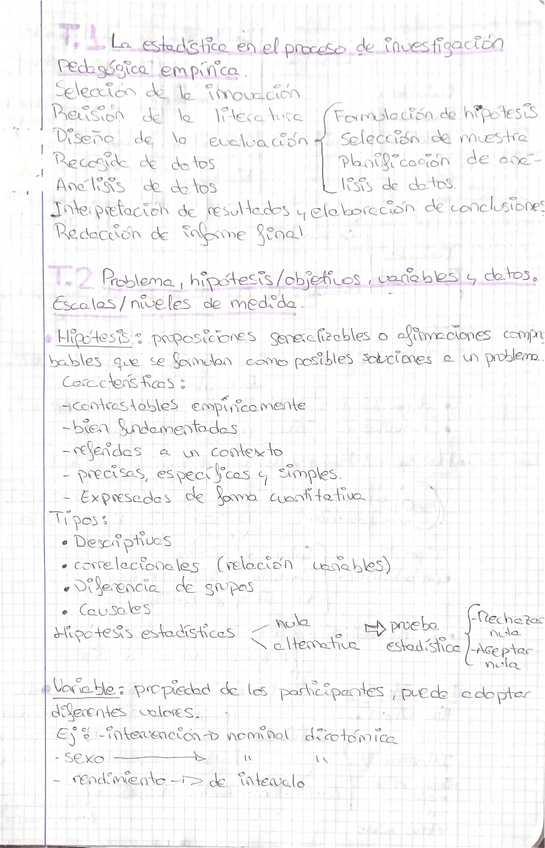 T.1 La estadística en el proceso de investigación
pedagógica empírica.
Selección de la innovación
Revisión de la literatura
Diseño de la evaluación
Formulación de hipótesis
Selección de muestra
Planificación de aná-
lisis de datos
Recogida de datos
Análisis de datos
Interpretación de resultados y elaboración de conclusiones
Redacción de informe final
T.2 Problema, hipótesis/objetivos, variables y datos.
Escalas/niveles de medida.
• Hipótesis: proposiciones generalizables o afirmaciones compro
bables que se formulan como posibles soluciones a un problema.
Características:
-contrastables empíricamente
-bien fundamentadas
-referidas a un contexto
- precisas, específicas y simples.
- Expresadas de forma cuantitativa
Tipos:
• Descriptivas
• correlacionales (relación variables)
• Diferencia de grupos
• Causales
Hipótesis estadísticas < nula
alternativa
⇒ prueba
estadística
-Rechazar
nula
-Aceptar
nula
• Variable: propiedad de los participantes, puede adoptar
diferentes valores.
Ej: -intervención → nominal dicotómica
- sexo → " "
- rendimiento → de intervalo